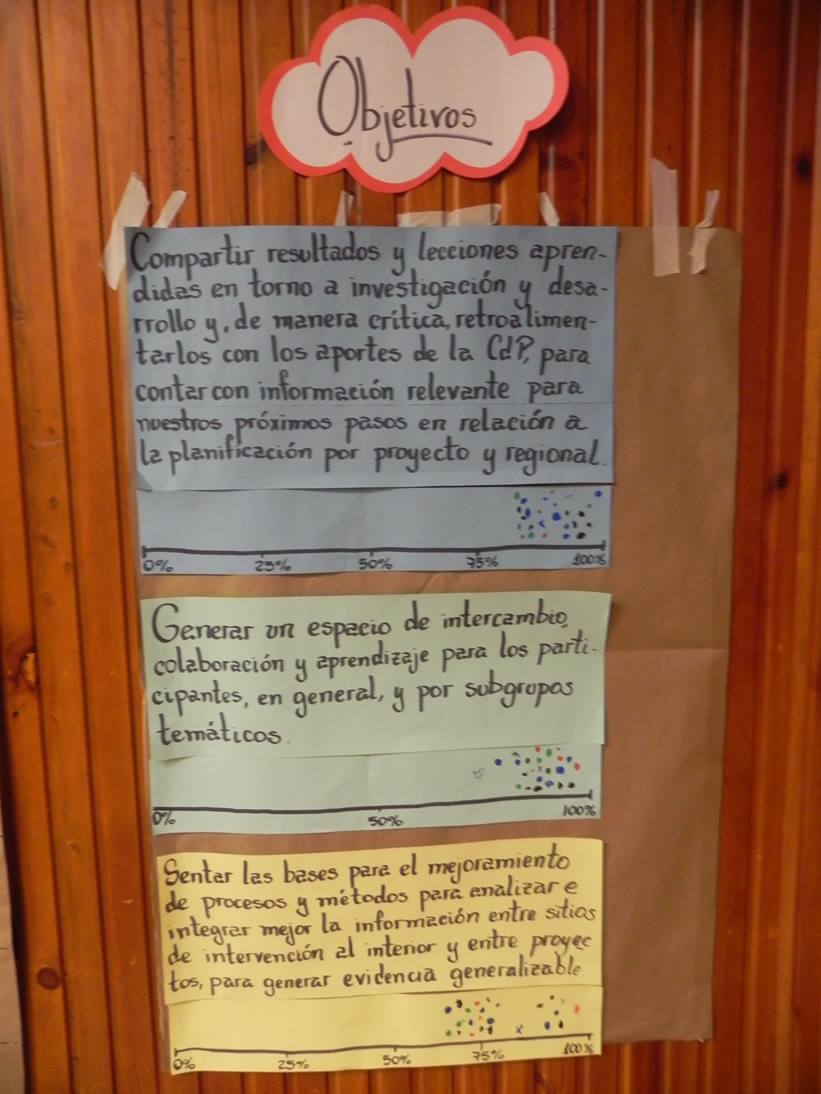 Objetivos
Compartir resultados y lecciones apren-
didas en torno a investigación y desa-
rrollo y, de manera crítica, retroalimen-
tarlos con los aportes de la CdP, para
contar con información relevante para
nuestros próximos pasos en relación a
la planificación por proyecto y regional.
0% 25% 50% 75% 100%
Generar un espacio de intercambio,
colaboración y aprendizaje para los parti-
cipantes, en general, y por subgrupos
temáticos.
0% 50% 100%
Sentar las bases para el mejoramiento
de procesos y métodos para analizar e
integrar mejor la información entre sitios
de intervención al interior y entre proyec
tos, para generar evidencia generalizable.
0% 25% 50% 75% 100%